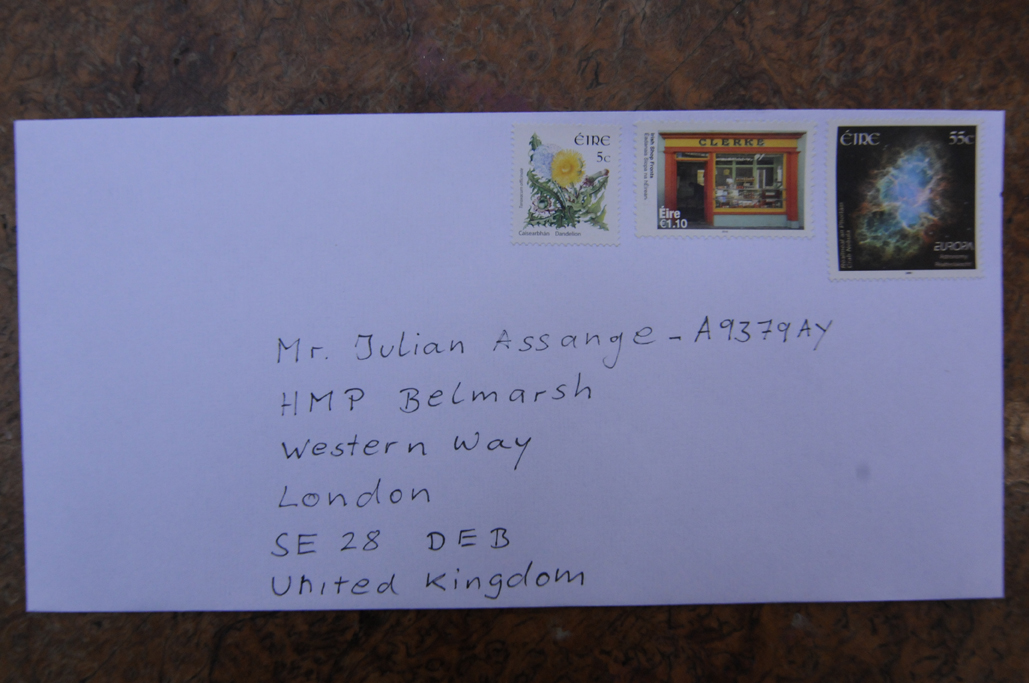 ÉIRE
5c
Caisearbhán Dandelion
Irish Shop Fronts
CLERKE
Éire
€1.10
ÉIRE 55c
EUROPA
Astronomy
Mr. Julian Assange - A9379AY
HMP Belmarsh
Western Way
London
SE 28 DEB
United Kingdom